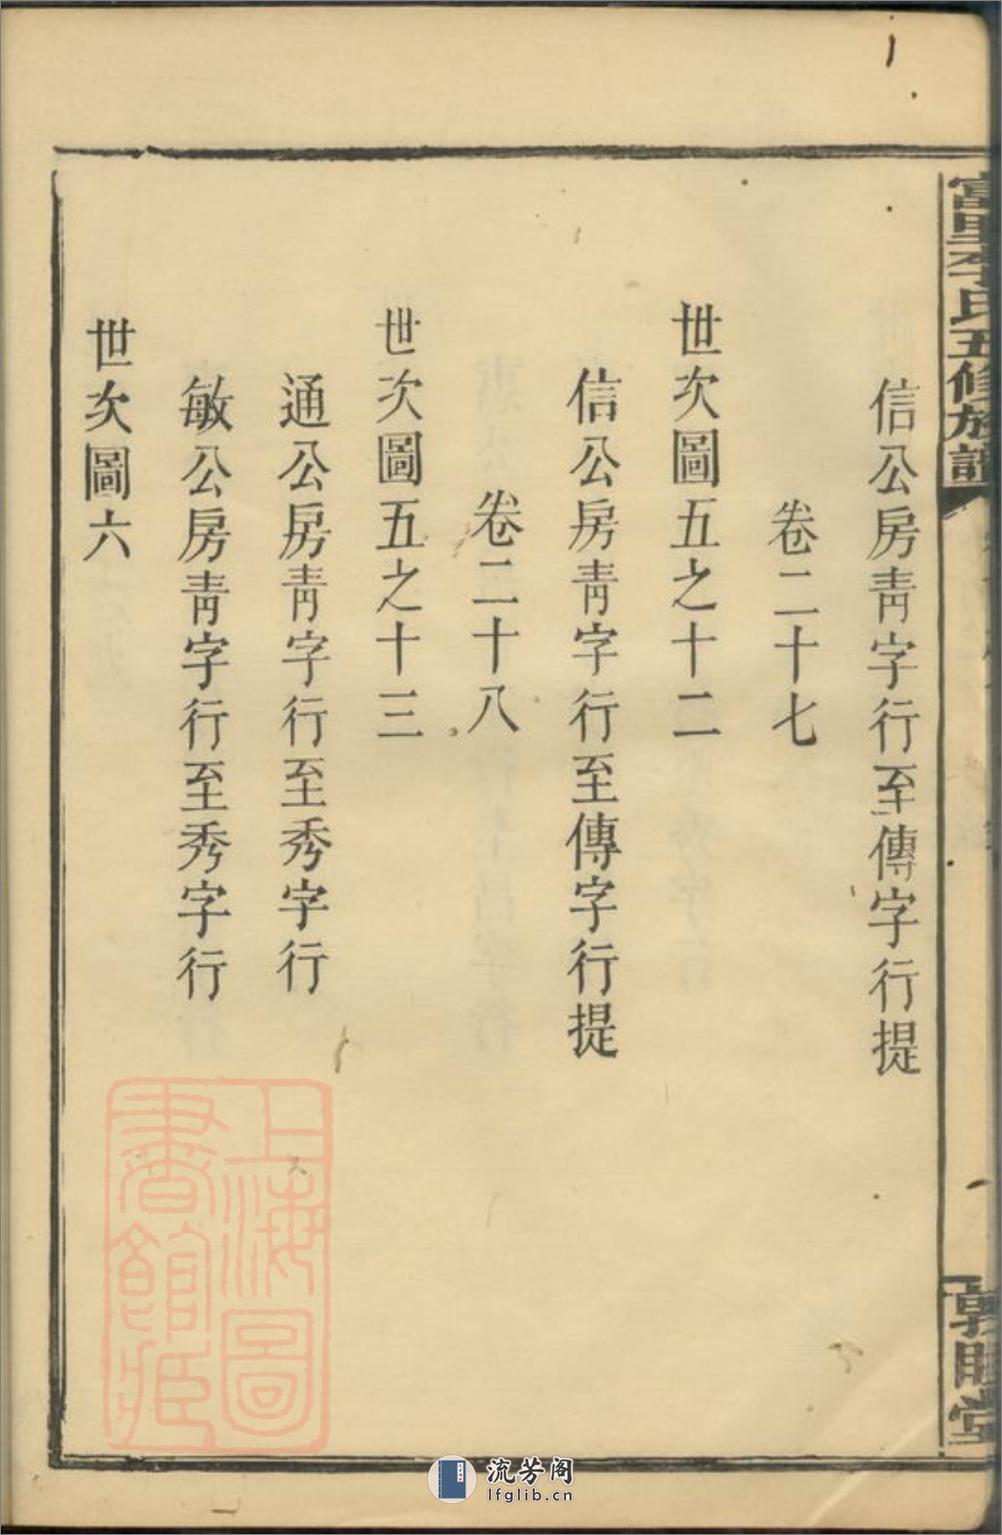 富里李氏五修族譜
敦睦堂
信公房靑字行至傳字行提
卷二十七
世次圖五之十二
信公房靑字行至傳字行提
卷二十八
世次圖五之十三
通公房靑字行至秀字行
敏公房靑字行至秀字行
世次圖六
上海圖
書館藏
流芳阁
lfglib.cn